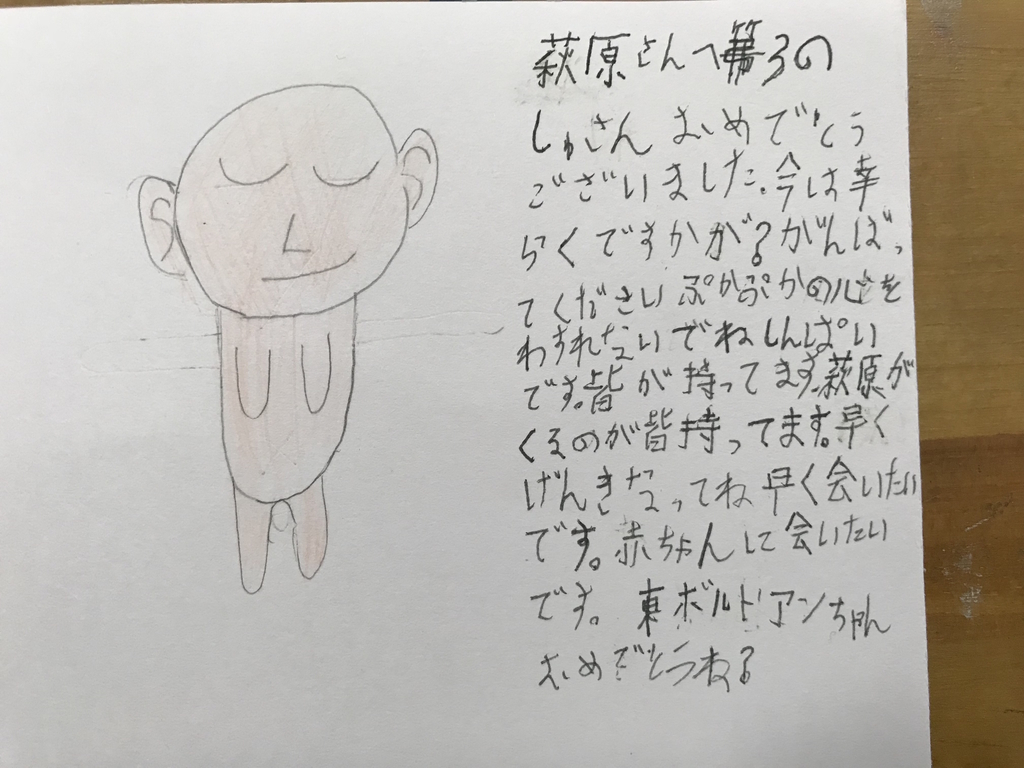 萩原さんへ第3の
しゅさん おめでとう
ございました。今は幸
らくですかが?がんばっ
てください ぷかぷかの心を
わすれないでねしんぱい
です。皆が持ってます。萩原が
くるのが皆持ってます。早く
げんきなってね 早く会いたい
です。赤ちゃんして会いたい
です。 東ボルドアンちゃん
おめでとうね?